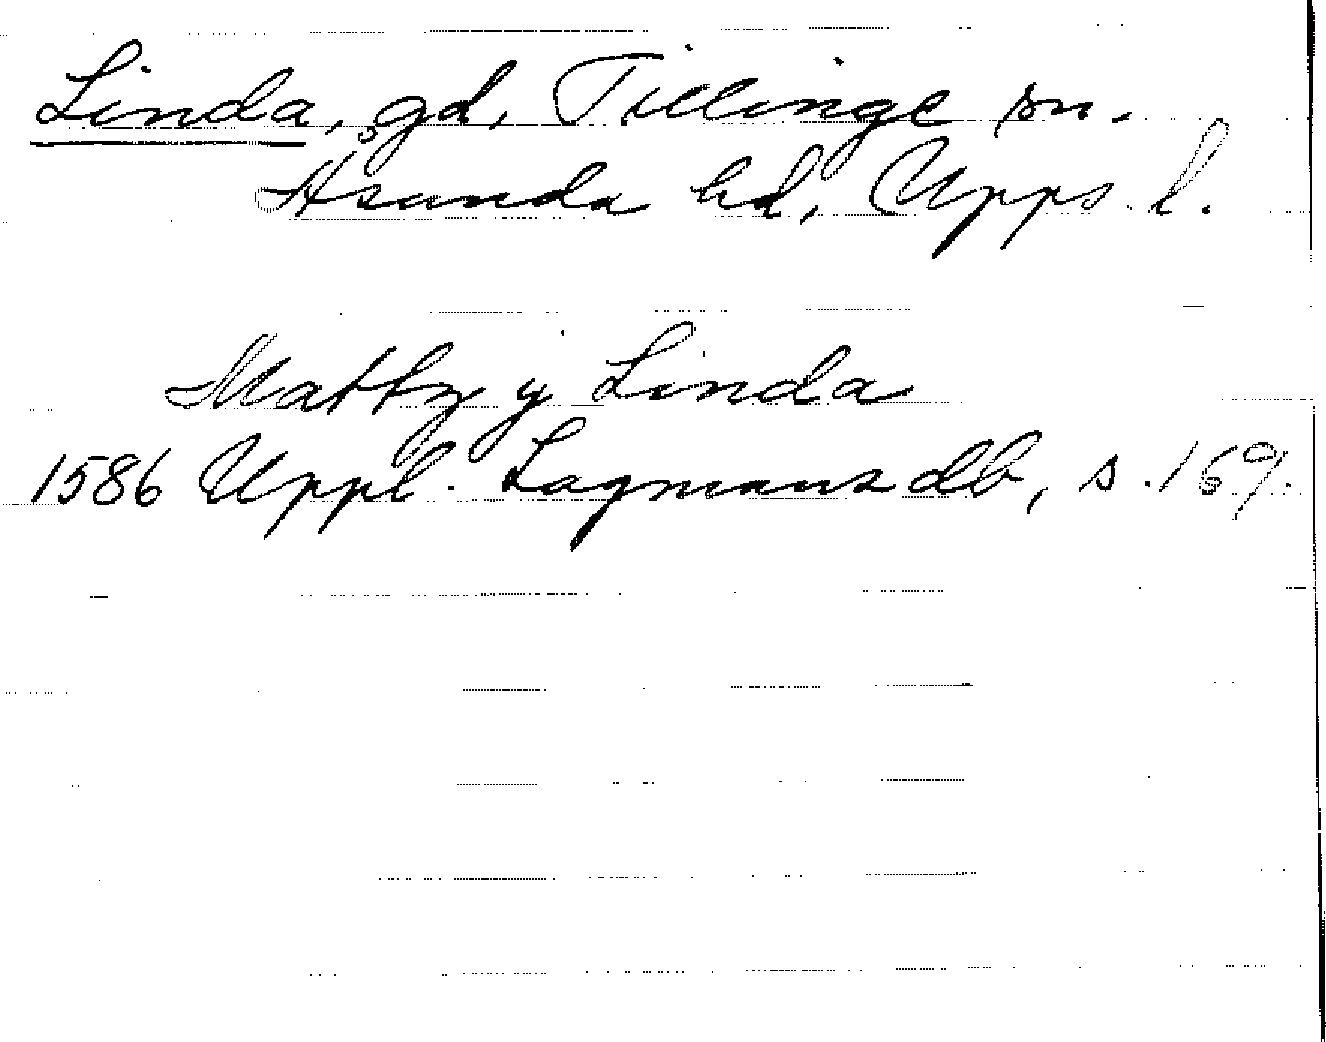 Linda, gd, Tillinge sn.
Åsunda hd, Upps. l.
Mattz y Linda
1586 Uppl. Lagmansdb, s. 169.